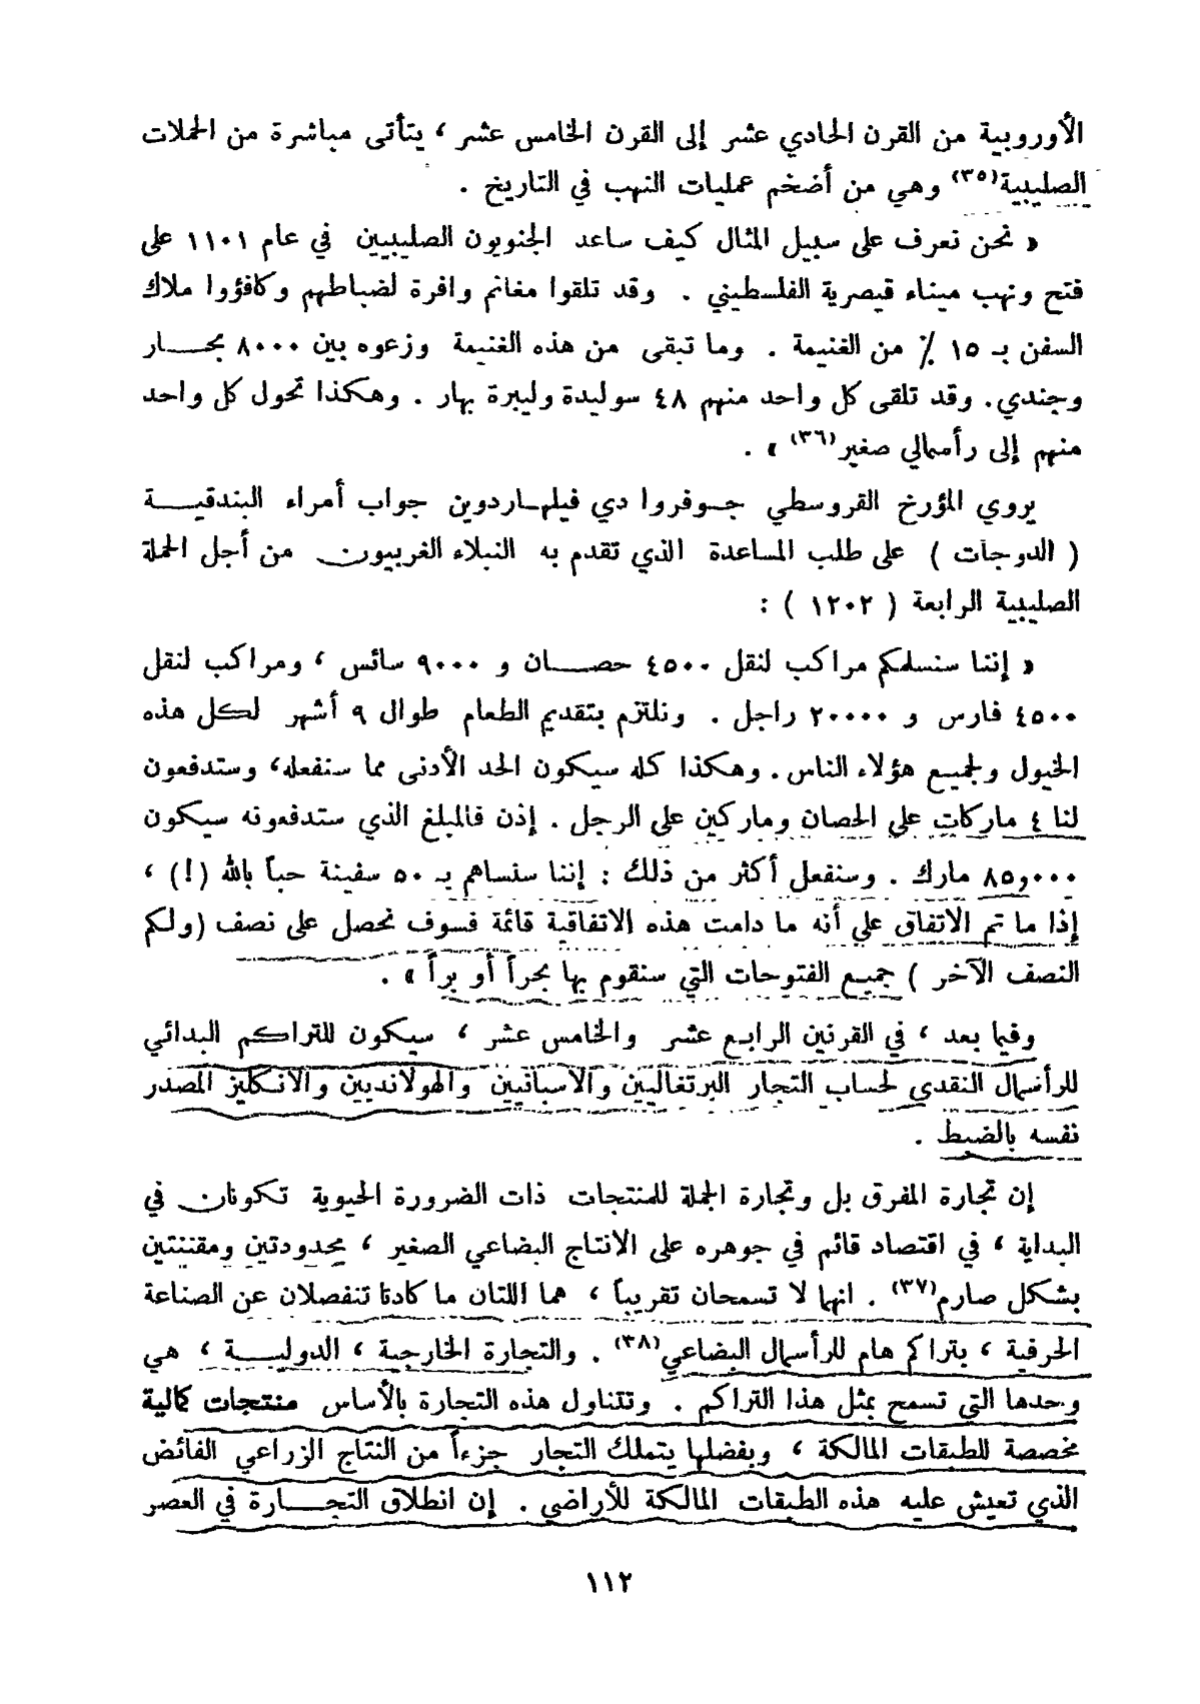 الأوروبية من القرن الحادي عشر إلى القرن الخامس عشر ، يتأتى مباشرة من الحملات
الصليبية(٣٥) وهي من أضخم عمليات النهب في التاريخ .
« نحن نعرف على سبيل المثال كيف ساعد الجنويون الصليبيين في عام ١١٠١ على
فتح ونهب ميناء قيصرية الفلسطيني . وقد تلقوا مغانم وافرة لضباطهم وكافؤوا ملاك
السفن بـ ١٥ ٪ من الغنيمة . وما تبقى من هذه الغنيمة وزعوه بين ٨٠٠٠ بحـــار
وجندي. وقد تلقى كل واحد منهم ٤٨ سوليدة وليبرة بهار . وهكذا تحول كل واحد
منهم إلى رأسمالي صغير(٣٦) » .
يروي المؤرخ القروسطي جـوفروا دي فيلهـاردوين جواب أمراء البندقيـــة
( الدوجات ) على طلب المساعدة الذي تقدم به النبلاء الغربيون من أجل الحملة
الصليبية الرابعة ( ١٢٠٢ ) :
« إننا سنسلمكم مراكب لنقل ٤٥٠٠ حصـــان و ٩٠٠٠ سائس ، ومراكب لنقل
٤٥٠٠ فارس و ٢٠٠٠٠ راجل . ونلتزم بتقديم الطعام طوال ٩ أشهر لكل هذه
الخيول ولجميع هؤلاء الناس. وهكذا كله سيكون الحد الأدنى مما سنفعله، وستدفعون
لنا ٤ ماركات على الحصان وماركين على الرجل . إذن فالمبلغ الذي ستدفعونه سيكون
٨٥و٠٠٠ مارك . وسنفعل أكثر من ذلك : إننا سنساهم بـ ٥٠ سفينة حباً بالله (!) ،
إذا ما تم الاتفاق على أنه ما دامت هذه الاتفاقية قائمة فسوف نحصل على نصف (ولكم
النصف الآخر ) جميع الفتوحات التي سنقوم بها بحراً أو براً » .
وفيما بعد ، في القرنين الرابع عشر والخامس عشر ، سيكون للتراكم البدائي
للرأسمال النقدي لحساب التجار البرتغاليين والاسبانيين والهولانديين والانكليز المصدر
نفسه بالضبط .
إن تجارة المفرق بل وتجارة الجملة للمنتجات ذات الضرورة الحيوية تكونان في
البداية ، في اقتصاد قائم في جوهره على الانتاج البضاعي الصغير ، محدودتين ومقننتين
بشكل صارم(٣٧) . انهما لا تسمحان تقريباً ، هما اللتان ما كادتا تنفصلان عن الصناعة
الحرفية ، بتراكم هام للرأسمال البضاعي(٣٨) . والتجارة الخارجية ، الدوليـــة ، هي
وحدها التي تسمح بمثل هذا التراكم . وتتناول هذه التجارة بالأساس منتجات كمالية
مخصصة للطبقات المالكة ، وبفضلها يتملك التجار جزءاً من النتاج الزراعي الفائض
الذي تعيش عليه هذه الطبقات المالكة للأراضي . إن انطلاق التجـــارة في العصر
١١٢